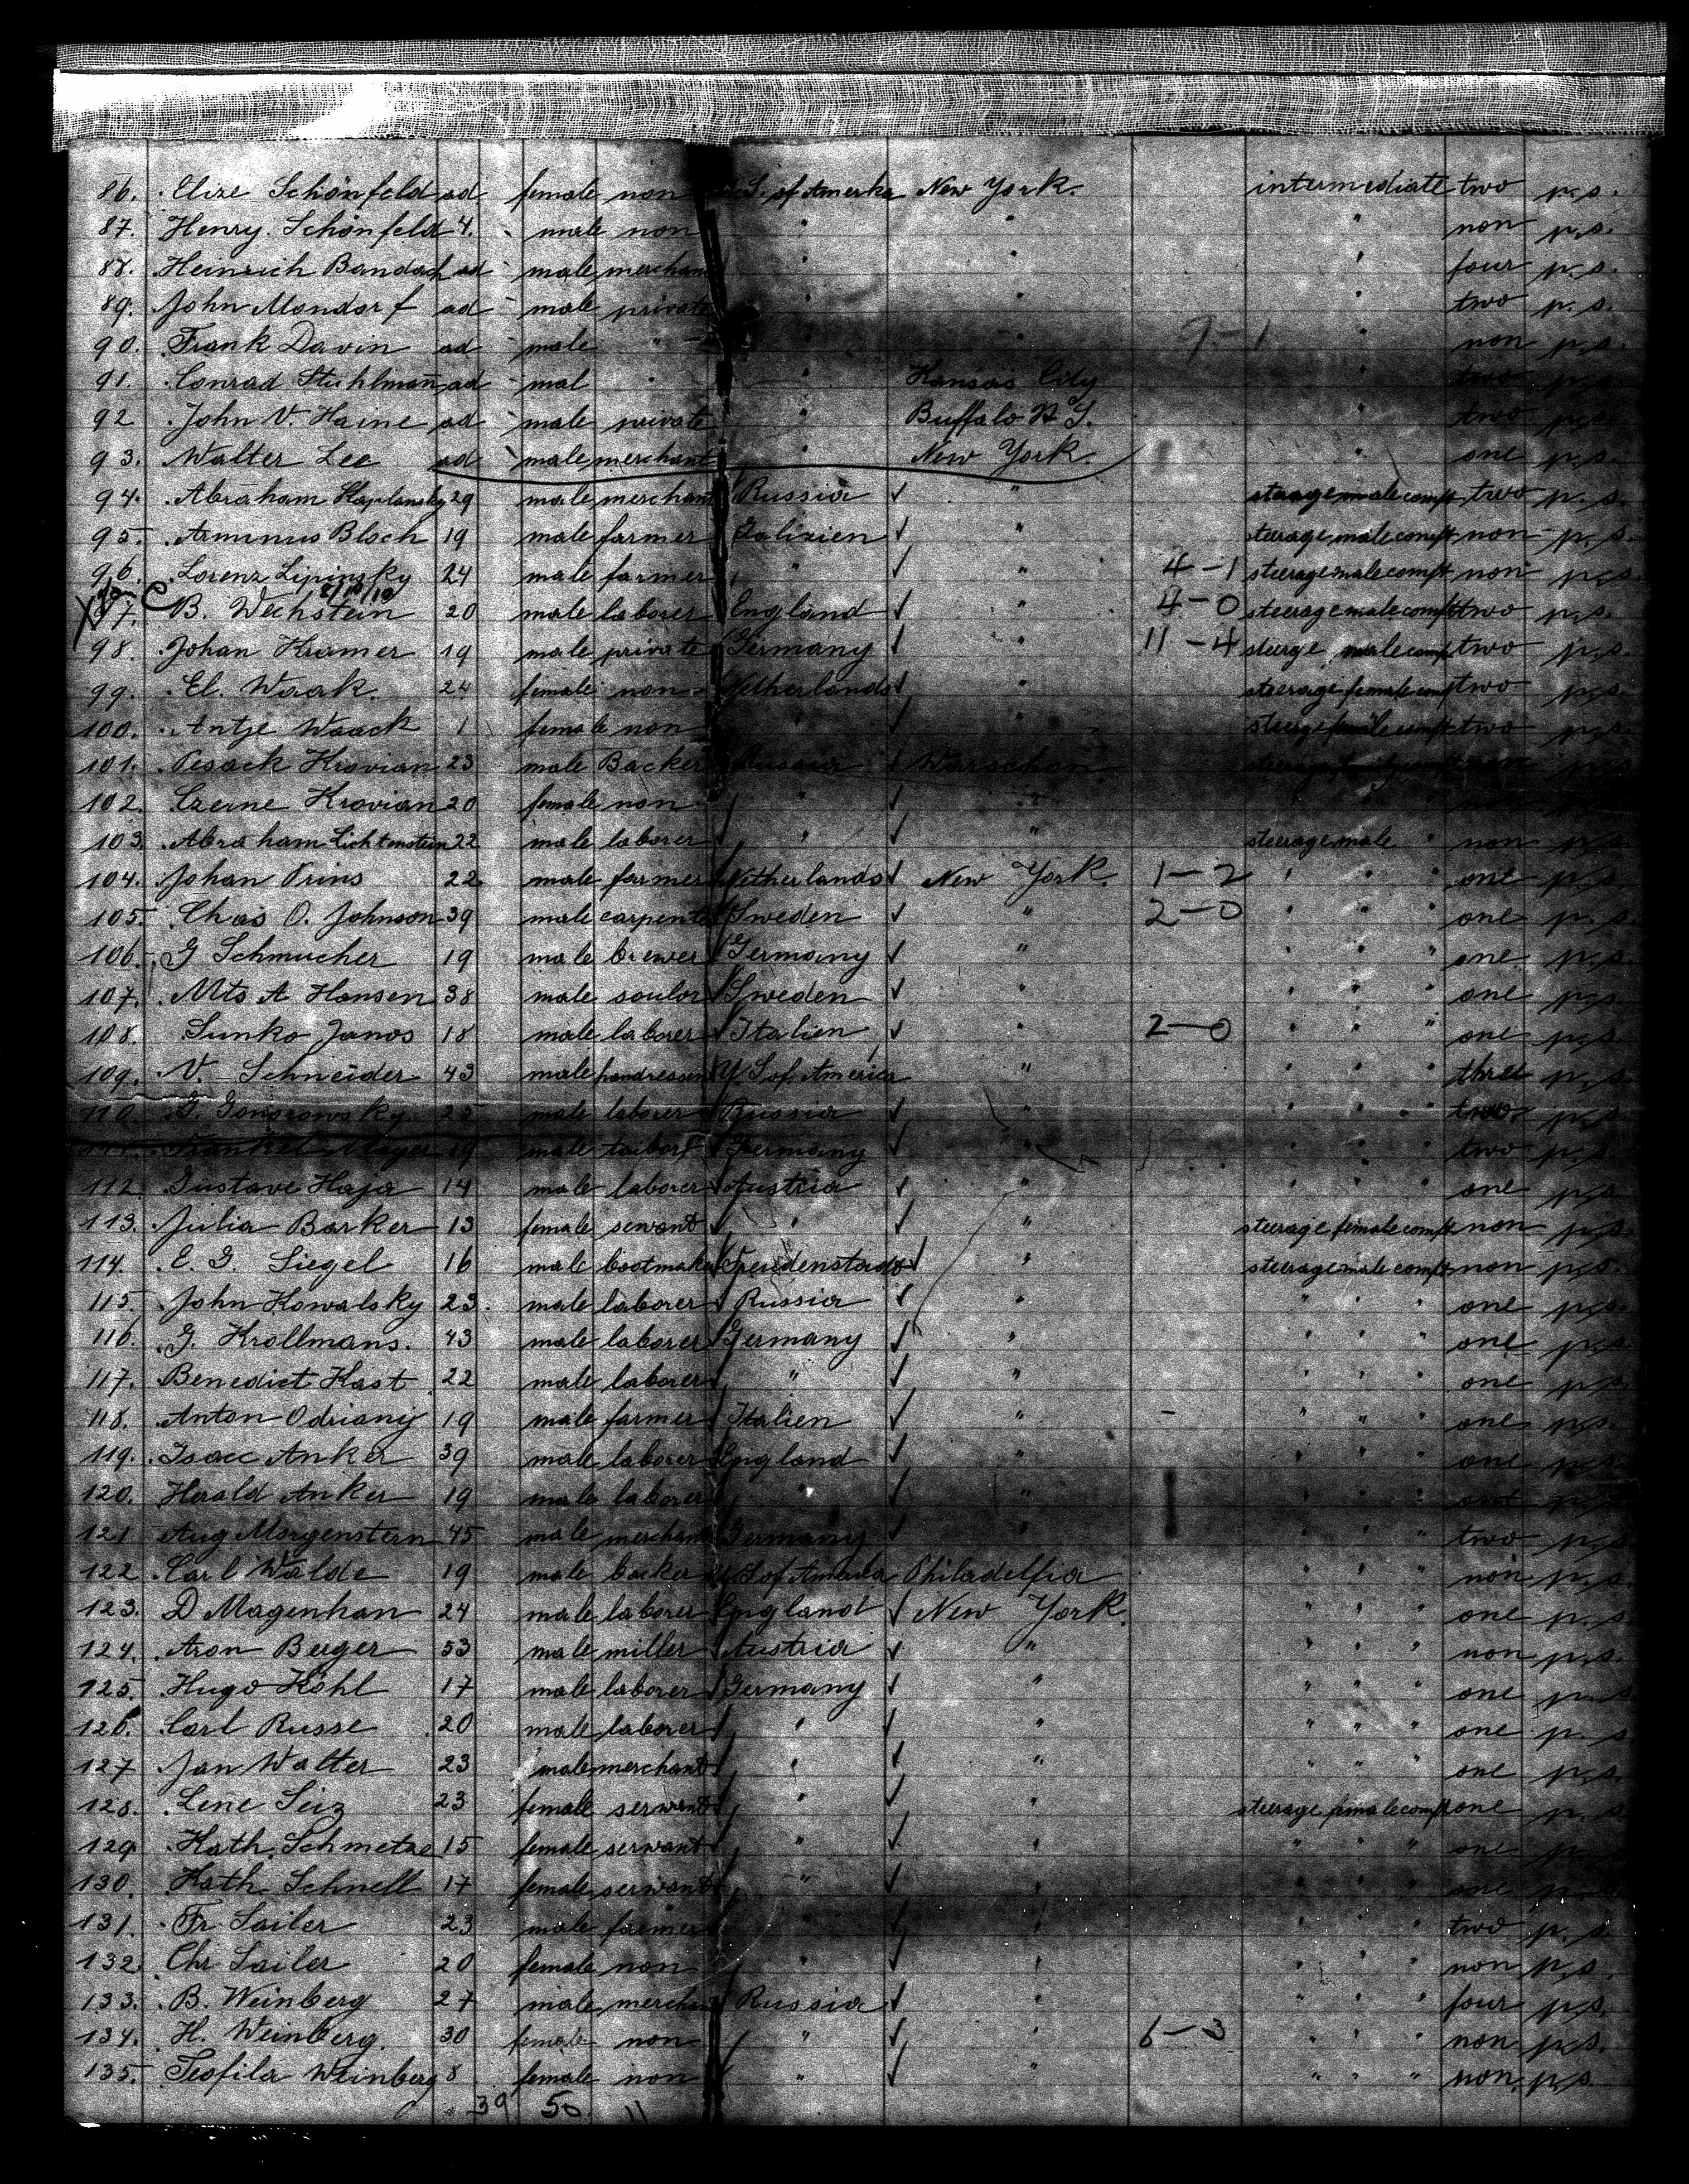 86. Elize Schönfeld ad female non U.S. of Amerika New York. intermediate two p.s.
87. Henry. Schönfeld 4. male non " " " non p.s.
88. Heinrich Bandach ad male merchant " " " four p.s.
89. John Mondorf ad male private " " " two p.s.
90. Frank Davin ad male " " " 9-1 " non p.s.
91. Conrad Stuhlmann ad mal " " Kansas City " two p.s.
92 John V. Haine ad male private " Buffalo N.Y. " two p.s.
93. Walter Lee ad male merchant " New York. " one p.s.
94. Abraham Kaplansky 29 male merchant Russia " steerage male compt two p.s.
95. Arminus Bloch 19 male farmer Galizien " steerage male compt non p.s.
96. Lorenz Lipinsky 24 male farmer " " 4-1 steerage male compt non p.s.
97. B. Wechstein 20 male laborer England " 4-0 steerage male compt two p.s.
98. Johan Kramer 19 male private Germany " 11-4 steerge male compt two p.s.
99. El. Waak. 24 female non Netherlands " steerage female compt two p.s.
100. Antje Waack 1 female non " " steerge female compt two p.s.
101. Pesack Krovian 23 male Backer Russia Warschau
102. Czerne Krovian 20 female non " " non
103. Abraham Lichtenstein 22 male laborer " " steerage male " non p.s.
104. Johan Prins 22 male farmer Netherlands New York. 1-2 " " " one p.s.
105. Chas O. Johnson 39 male carpenter Sweden " 2-0 " " " one p.s.
106. G Schmucher 19 male brewer Germany " " " " one p.s.
107. Mts A Hansen 38 male Sweden " " " " one p.s.
108. Sunko Janos 18 male laborer Italien " 2-0 " " " one p.s.
109. V. Schneider 43 male U S of America " " " " three p.s.
110. G. Gonsrowsky 25 male laborer Russia " " " " two p.s.
111. Frankel Mayer 19 male tailor Germany " " " " two p.s.
112. Gustave Haja 14 male laborer Austria " " " " one p.s.
113. Julia Barker 13 female servant " " steerage female compt non p.s.
114. E. G. Siegel 16 male bootmaker Freudenstadt " steerage male compt non p.s.
115. John Kowalsky 23. male laborer Russia " " " " one p.s.
116. G. Krollmans. 43 male laborer Germany " " " " one p.s.
117. Benedict Kast 22 male laborer " " " " " one p.s.
118. Anton Odrianij 19 male farmer Italien " - " " " one p.s.
119. Isaac Anker 39 male laborer England " " " " one p.s.
120. Herald Anker 19 male laborer " " " " " one p.s.
121 Aug Morgenstern 45 male merchant Germany " " " " two p.s.
122 Carl Walde 19 male backer U S of America Philadelfia " " " non p.s.
123. D Magenhan 24 male laborer England New York " " " one p.s.
124. Aron Berger 53 male miller Austria " " " " non p.s.
125. Hugo Kohl 17 male laborer Germany " " " " one p.s.
126. Carl Russe 20 male laborer " " " " " one p.s.
127 Jan Walter 23 male merchant " " " " " one p.s.
128. Lene Seiz 23 female servant " " steerage female compt one p.s.
129. Kath. Schmetze 15 female servant " " " " " one p.
130. Kath Schnell 17 female servant " " " " " one p.s.
131. Fr Sailer 23 male farmer " " " " " two p.s.
132. Chr Sailer 20 female non " " " " " non p.s.
133. B. Weinberg 27 male merchant Russia " " " " four p.s.
134. H. Weinberg. 30 female non " " 6-3 " " " non p.s.
135. Teofila Weinberg 8 female non " " " " " non p.s.
39 50 11